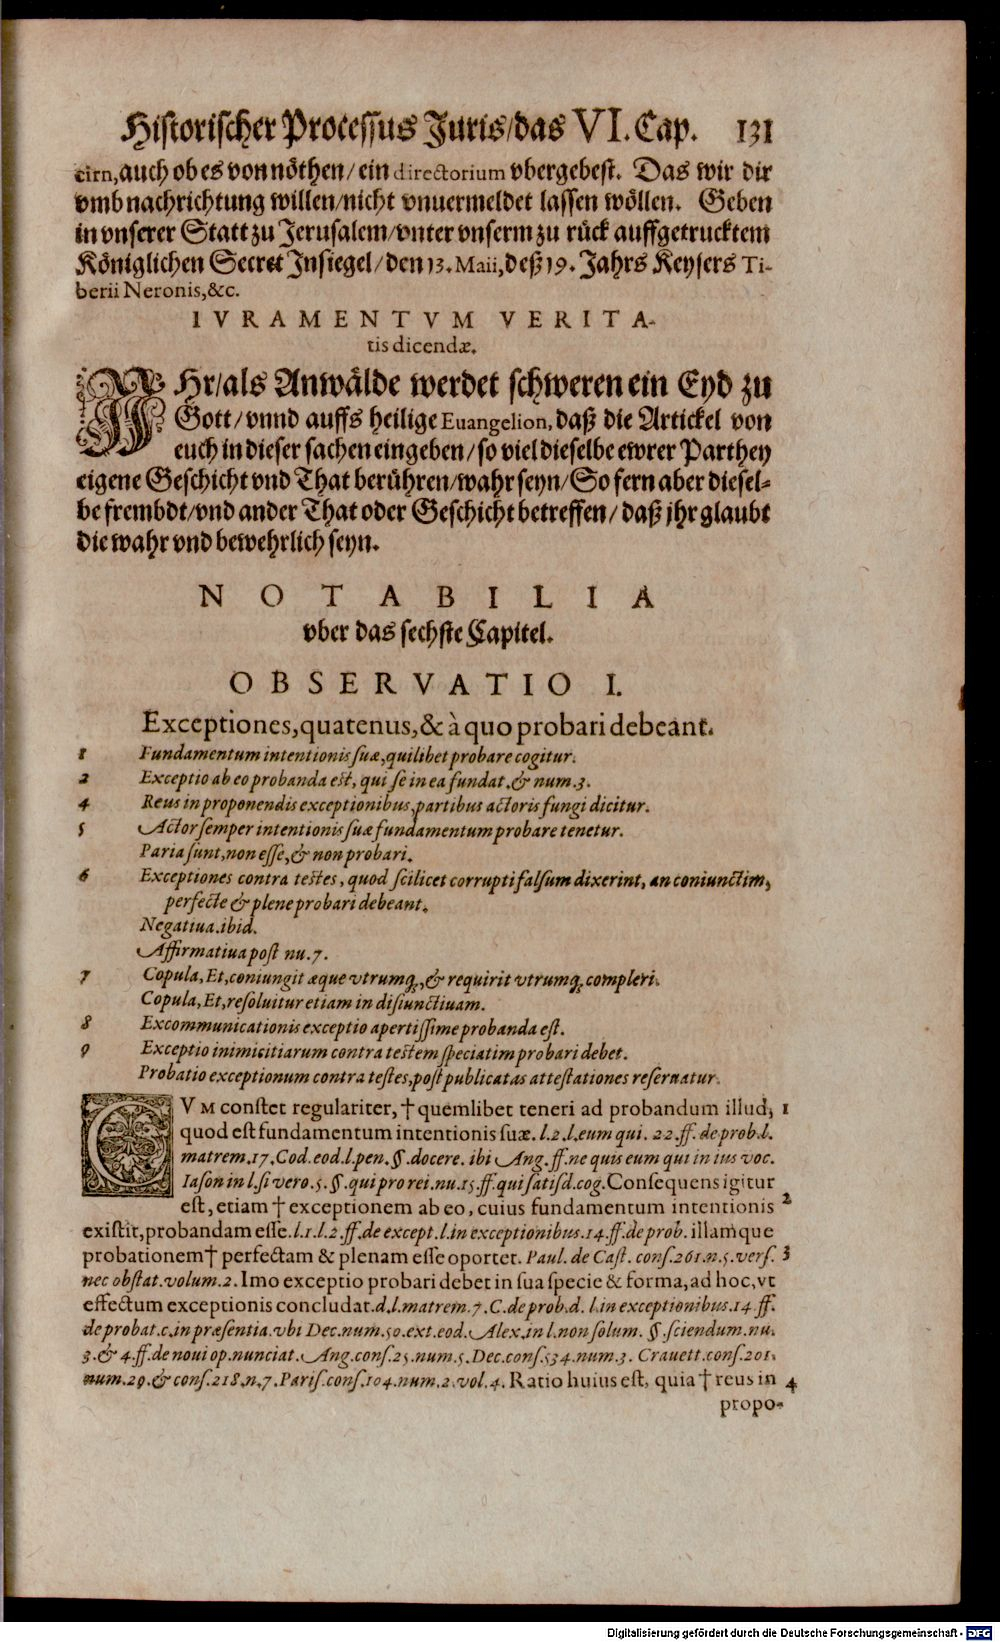 Historischer Processus Juris/das VI. Cap. 131
cirn, auch ob es von nöthen/ ein directorium vbergebest. Das wir dir
vmb nachrichtung willen/nicht vnuermeldet lassen wöllen. Geben
in vnserer Statt zu Jerusalem/vnter vnserm zu rück auffgetrucktem
Königlichen Secret Insiegel/ den 13. Maii, deß 19. Jahrs Keysers Ti-
berii Neronis, &c.
IVRAMENTVM VERITA-
tis dicendæ.
WHr/als Anwälde werdet schweren ein Eyd zu
Gott/ vnnd auffs heilige Euangelion, daß die Artickel von
euch in dieser sachen eingeben/ so viel dieselbe ewrer Parthey
eigene Geschicht vnd That berühren/wahr seyn/ So fern aber diesel-
be frembdt/vnd ander That oder Geschicht betreffen/ daß jhr glaubt
die wahr vnd bewehrlich seyn.
NOTABILIA
vber das sechste Capitel.
OBSERVATIO I.
Exceptiones, quatenus, & à quo probari debeant.
1 Fundamentum intentionis suæ, quilibet probare cogitur.
2 Exceptio ab eo probanda est, qui se in ea fundat. & num. 3.
4 Reus in proponendis exceptionibus, partibus actoris fungi dicitur.
5 Actor semper intentionis suæ fundamentum probare tenetur.
Paria sunt, non esse, & non probari.
6 Exceptiones contra testes, quod scilicet corrupti falsum dixerint, an coniunctim,
perfecte & plene probari debeant.
Negatiua. ibid.
Affirmatiua post nu. 7.
7 Copula, Et, coniungit æque vtrumq;, & requirit vtrumq; compleri.
Copula, Et, resoluitur etiam in disiunctiuam.
8 Excommunicationis exceptio apertissime probanda est.
9 Exceptio inimicitiarum contra testem speciatim probari debet.
Probatio exceptionum contra testes, post publicatas attestationes reseruatur.
CVM constet regulariter, † quemlibet teneri ad probandum illud, 1
quod est fundamentum intentionis suæ. l. 2. l. eum qui. 22. ff. de prob. l.
matrem. 17. Cod. eod. l. pen. §. docere. ibi Ang. ff. ne quis eum qui in ius voc.
Iason in l. si vero. 5. §. qui pro rei. nu. 15. ff. qui satisd. cog. Consequens igitur
est, etiam † exceptionem ab eo, cuius fundamentum intentionis 2
existit, probandam esse. l. 1. l. 2. ff. de except. l. in exceptionibus. 14. ff. de prob. illamque
probationem † perfectam & plenam esse oportet. Paul. de Cast. cons. 261. n. 5. vers. 3
nec obstat. volum. 2. Imo exceptio probari debet in sua specie & forma, ad hoc, vt
effectum exceptionis concludat. d. l. matrem. 7. C. de prob. d. l. in exceptionibus. 14. ff.
de probat. c. in præsentia. vbi Dec. num. 50. ext. eod. Alex. in l. non solum. §. sciendum. nu.
3. & 4. ff. de noui op. nunciat. Ang. cons. 25. num. 5. Dec. cons. 534. num. 3. Crauett. cons. 201.
num. 29. & cons. 218. n. 7. Paris. cons. 104. num. 2. vol. 4. Ratio huius est, quia † reus in 4
propo-
Digitalisierung gefördert durch die Deutsche Forschungsgemeinschaft - DFG